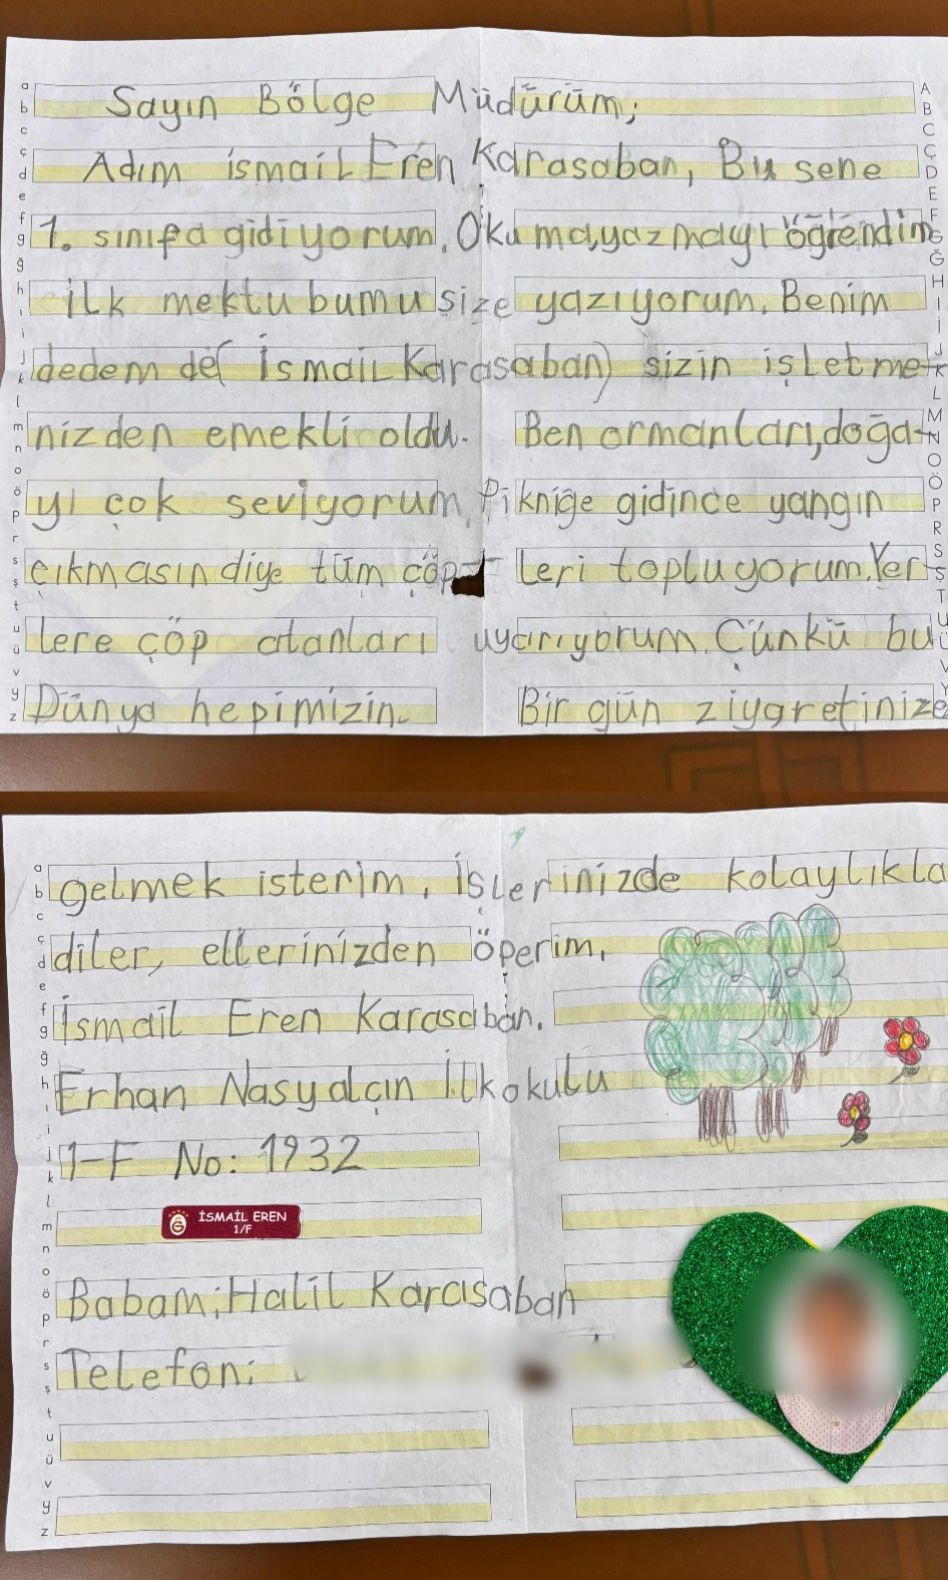 Sayın Bölge Müdürüm;
Adım ismail Eren Karasaban, Bu sene
1. sınıfa gidiyorum. Okumayı,yazmayı öğrendim
ilk mektubumu size yazıyorum. Benim
dedem de( İsmail Karasaban) sizin işletme-
nizden emekli oldu. Ben ormanları,doğa-
yı çok seviyorum, Pikniğe gidince yangın
çıkmasın diye tüm çöp- leri topluyorum.Yer-
lere çöp atanları uyarıyorum. Çünkü bu
Dünya hepimizin. Bir gün ziyaretinize
gelmek isterim. İşlerinizde kolaylıkla
diler, ellerinizden öperim.
İsmail Eren Karasaban.
Erhan Nasyalçın İlkokulu
1-F No: 1932
İSMAİL EREN
1/F
Babam;Halil Karasaban
Telefon:
a
b
c
ç
d
e
f
g
ğ
h
ı
i
j
k
l
m
n
o
ö
p
r
s
ş
t
u
ü
v
y
z
A
B
C
Ç
D
E
F
G
Ğ
H
I
İ
J
K
L
M
N
O
Ö
P
R
S
Ş
T
U
Ü
V
Y
a
b
c
ç
d
e
f
g
ğ
h
ı
i
j
k
l
m
n
o
ö
p
r
s
ş
t
u
ü
v
y
z